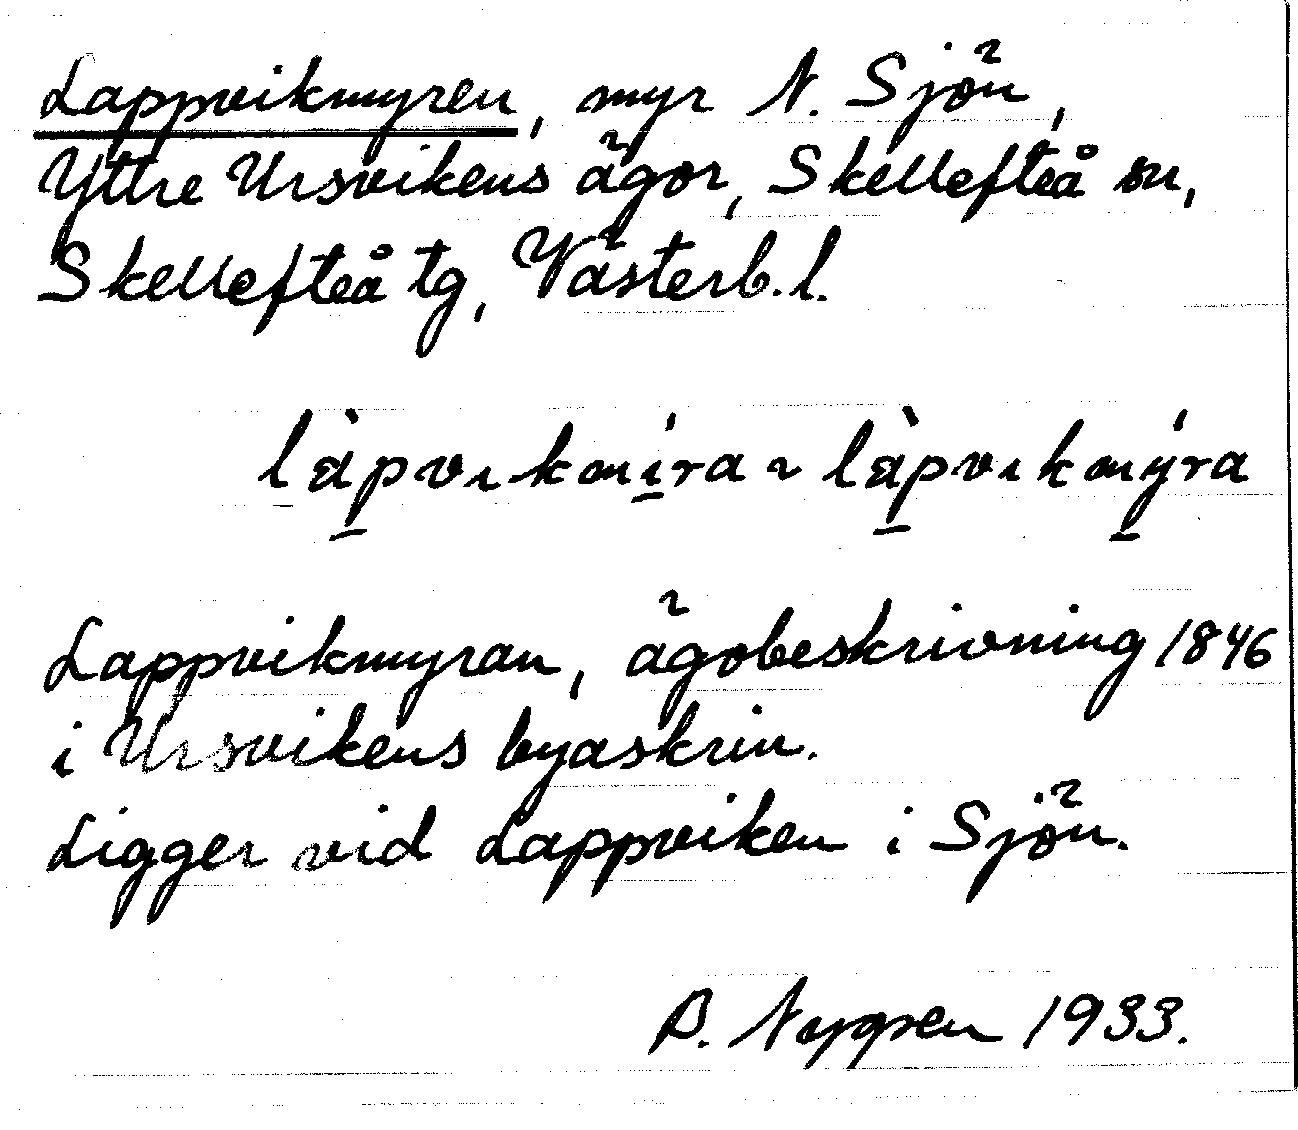 Lappvikmyren, myr N. Sjön,
Yttre Ursvikens ägor, Skellefteå sn,
Skellefteå tg, Västerb. l.
làpvıkmíra ~ làpvıkmýra
Lappvikmyran, ägobeskrivning 1846
i Ursvikens byaskrin.
Ligger vid Lappviken i Sjön.
B. Nygren 1933.